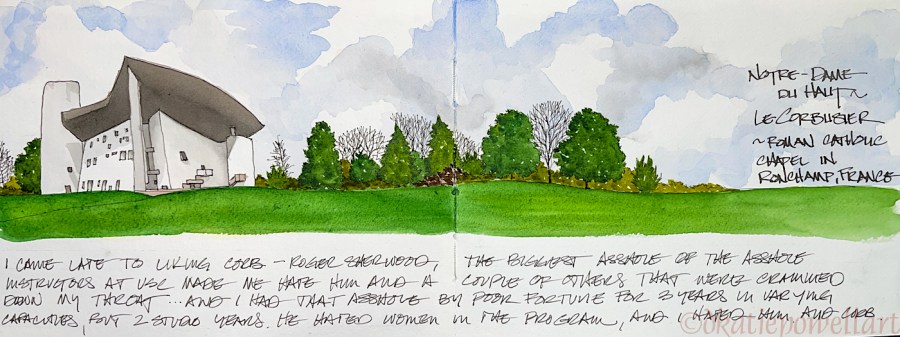 NOTRE-DAME
DU HAUT~
LE CORBUSIER
~ROMAN CATHOLIC
CHAPEL IN
RONCHAMP, FRANCE
I CAME LATE TO LIKING CORB — ROGER SHERWOOD, THE BIGGEST ASSHOLE OF THE ASSHOLE
INSTRUCTORS AT USC MADE ME HATE HIM AND A COUPLE OF OTHERS THAT WERE CRAMMED
DOWN MY THROAT... AND I HAD THAT ASSHOLE BY POOR FORTUNE FOR 3 YEARS IN VARYING
CAPACITIES, BUT 2 STUDIO YEARS. HE HATED WOMEN IN THE PROGRAM, AND I HATED HIM AND CORB.
©@katiepowellart